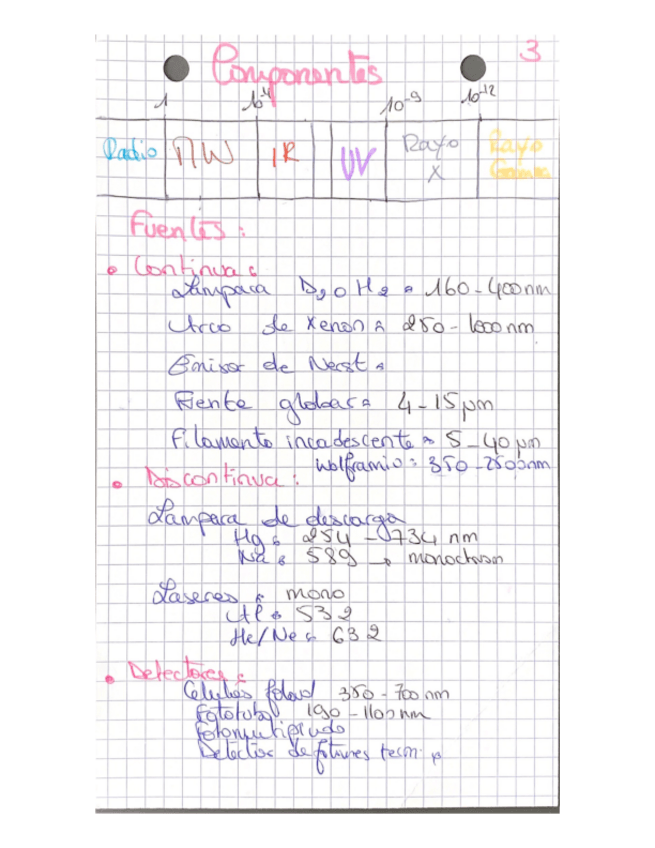 3
Componentes
1 10-4 10-9 10-12
Radio MW IR UV Rayo X Rayo Gamma
Fuentes :
• Continua :
Lampara D2 o H2 : 160-400nm
Arco de Xenon : 250-1000nm
Emisor de Nerst :
Fuente globar : 4-15 µm
Filamento incadescente : 5-40 µm
Wolframio : 350-2500nm
• Discontinua :
Lampara de descarga
Hg : 254-734 nm
Na : 589 → monocrom
Laseres : mono
532
He/Ne : 632
• Detectores :
350-700 nm
Fototubo 190-1100 nm
Detector de